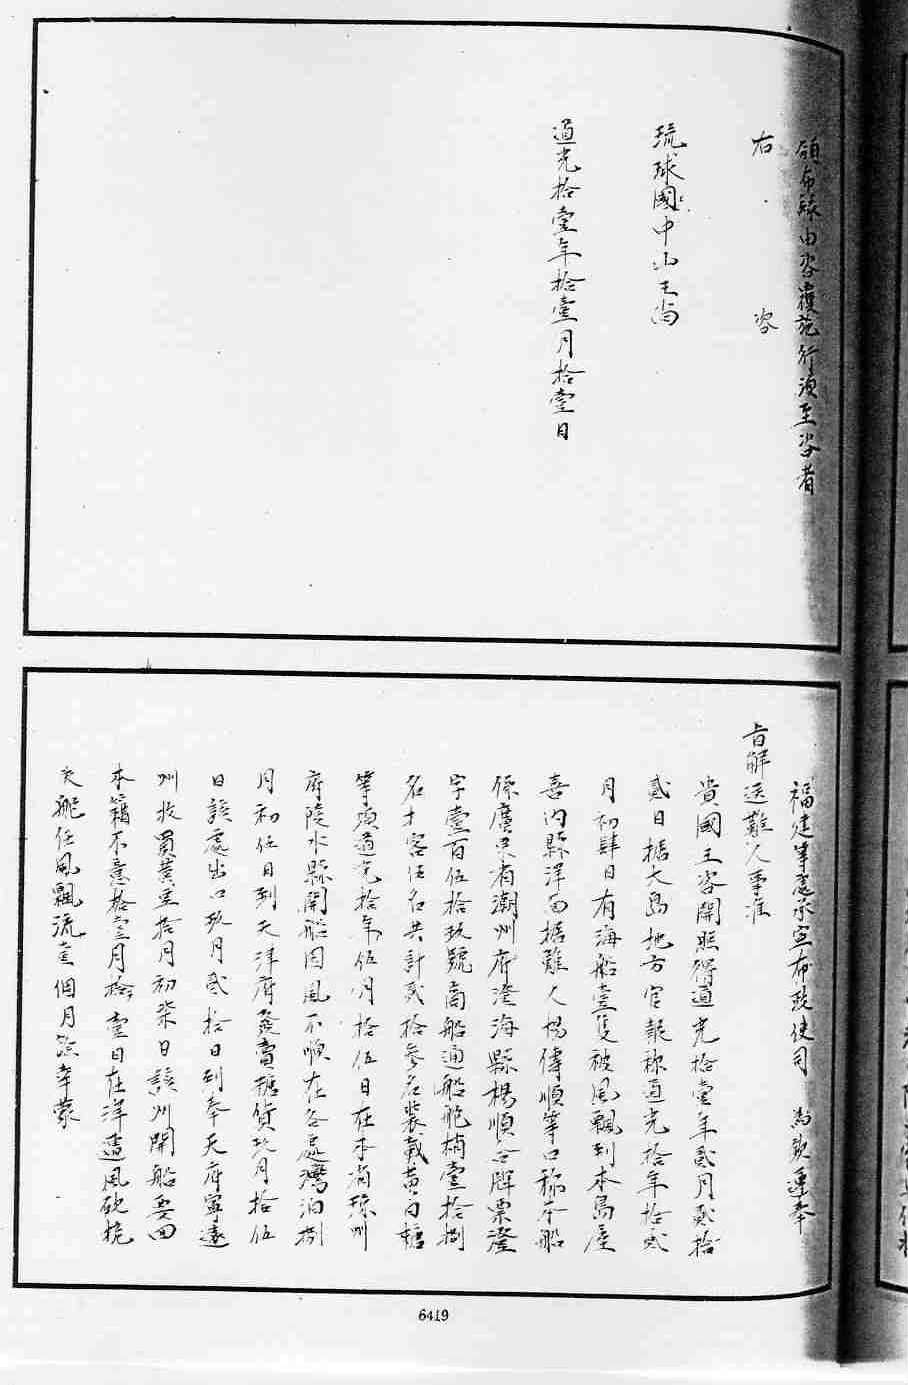 領布緣由咨覆施行須至咨者
右　咨
琉球國中山王尚
道光拾壹年拾壹月拾壹日
福建等處承宣布政使司　為欽遵奉
旨解送難人事准
貴國王咨開照得道光拾壹年貳月貳拾
貳日據大島地方官報稱道光拾年拾貳
月初肆日有海船壹隻被風飄到本島屋
喜內縣洋面據難人楊傳順等口稱本船
係廣東省潮州府澄海縣楊順合牌票澄
字壹百伍拾玖號商船通船舵梢壹拾捌
名才客伍名共計貳拾參名裝載黃白糖
等項道光拾年伍月拾伍日在本省瓊州
府陵水縣開船因風不順在各處灣泊捌
月初伍日到天津府發賣糖貨玖月拾伍
日該處出口玖月貳拾日到奉天府寧遠
州收買黃荳拾月初柒日該州開船要回
本籍不意拾壹月拾壹日在洋遭風砍桅
失舵任風飄流壹個月餘幸蒙
6419